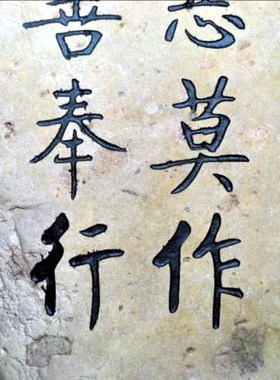 惡莫作
善奉行